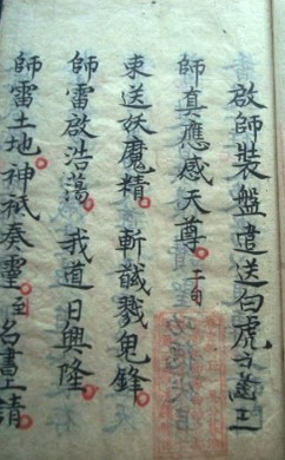 啟師裝盤遣送白虎方
師真應感天尊。
束送妖魔精。斬馘戮鬼鋒。
師雷啟浩蕩。我道日興隆。
師雷土地。神祇奏靈。到名書上清。